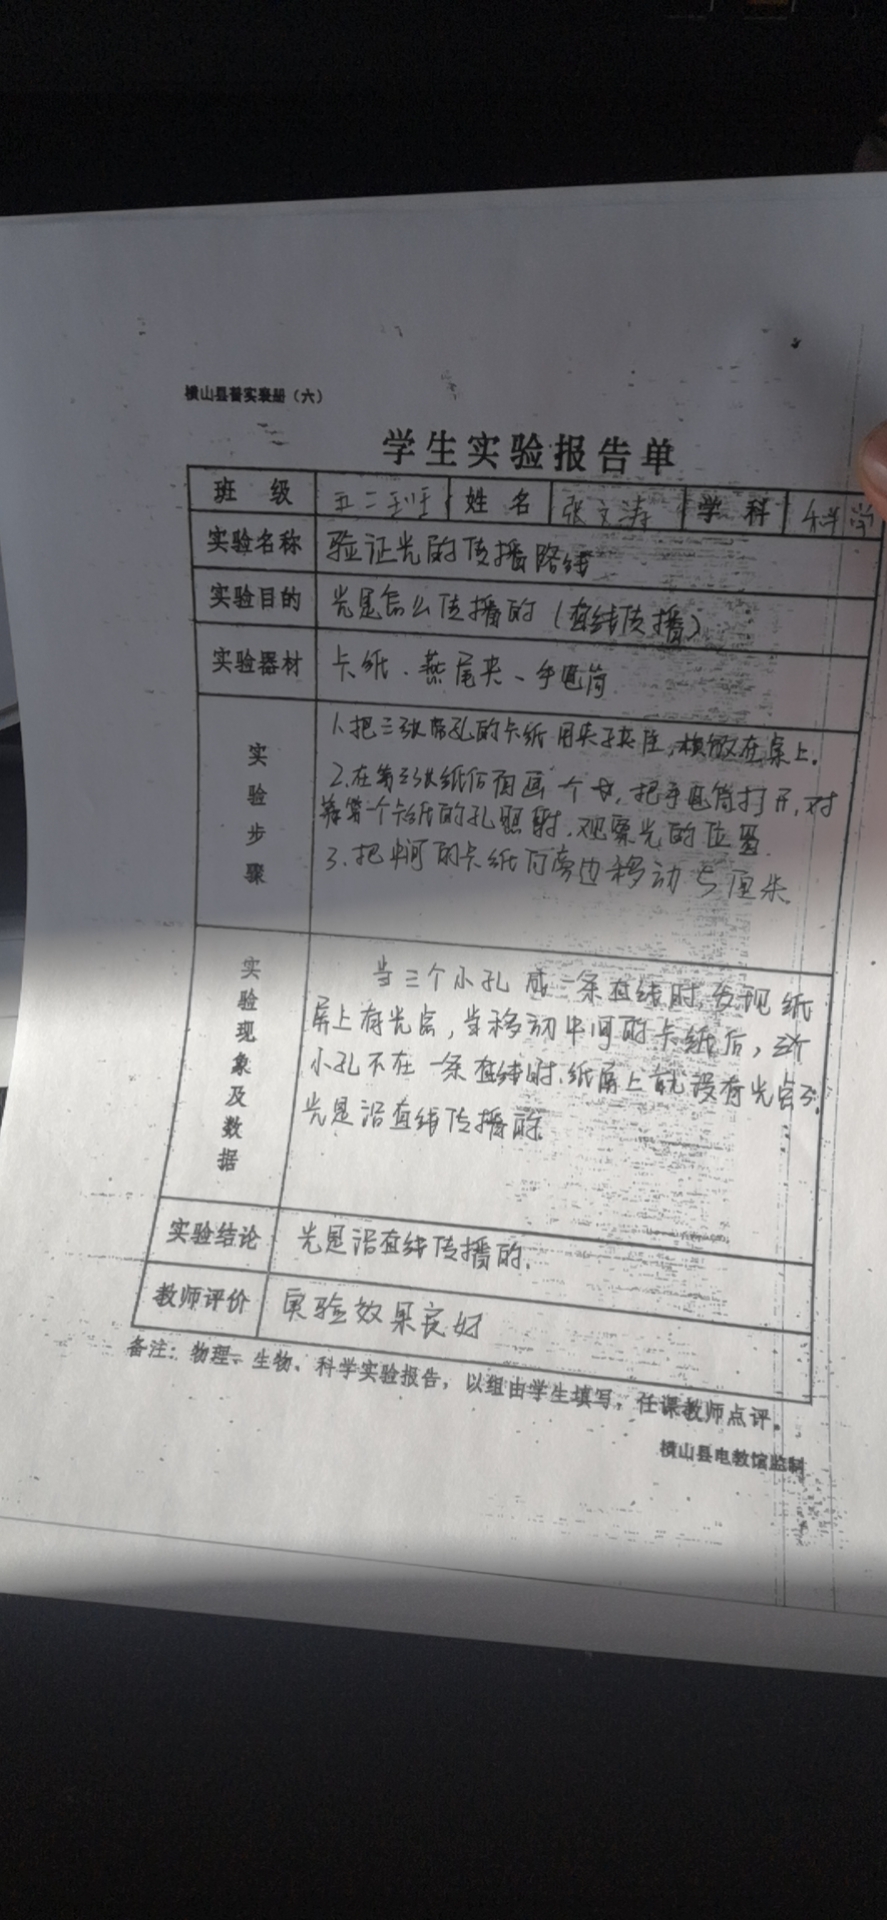 横山县普实表册（六）
学生实验报告单
班级 五二班 姓名 张文涛 学科 科学
实验名称 验证光的传播路线
实验目的 光是怎么传播的（直线传播）
实验器材 卡纸、燕尾夹、手电筒
实验步骤
1.把三张带孔的卡纸用夹子夹住,横放在桌上.
2.在第三张纸后面画个,把手电筒打开,对
着第一个卡纸的孔照射.观察光的位置.
3.把中间的卡纸向旁边移动5厘米
实验现象及数据
当三个小孔成一条直线时,发现纸
屏上有光点,当移动中间的卡纸后,三个
小孔不在一条直线时.纸屏上就没有光点了.
光是沿直线传播的.
实验结论 光是沿直线传播的.
教师评价 实验效果良好
备注：物理、生物、科学实验报告，以组由学生填写，任课教师点评。
横山县电教馆监制